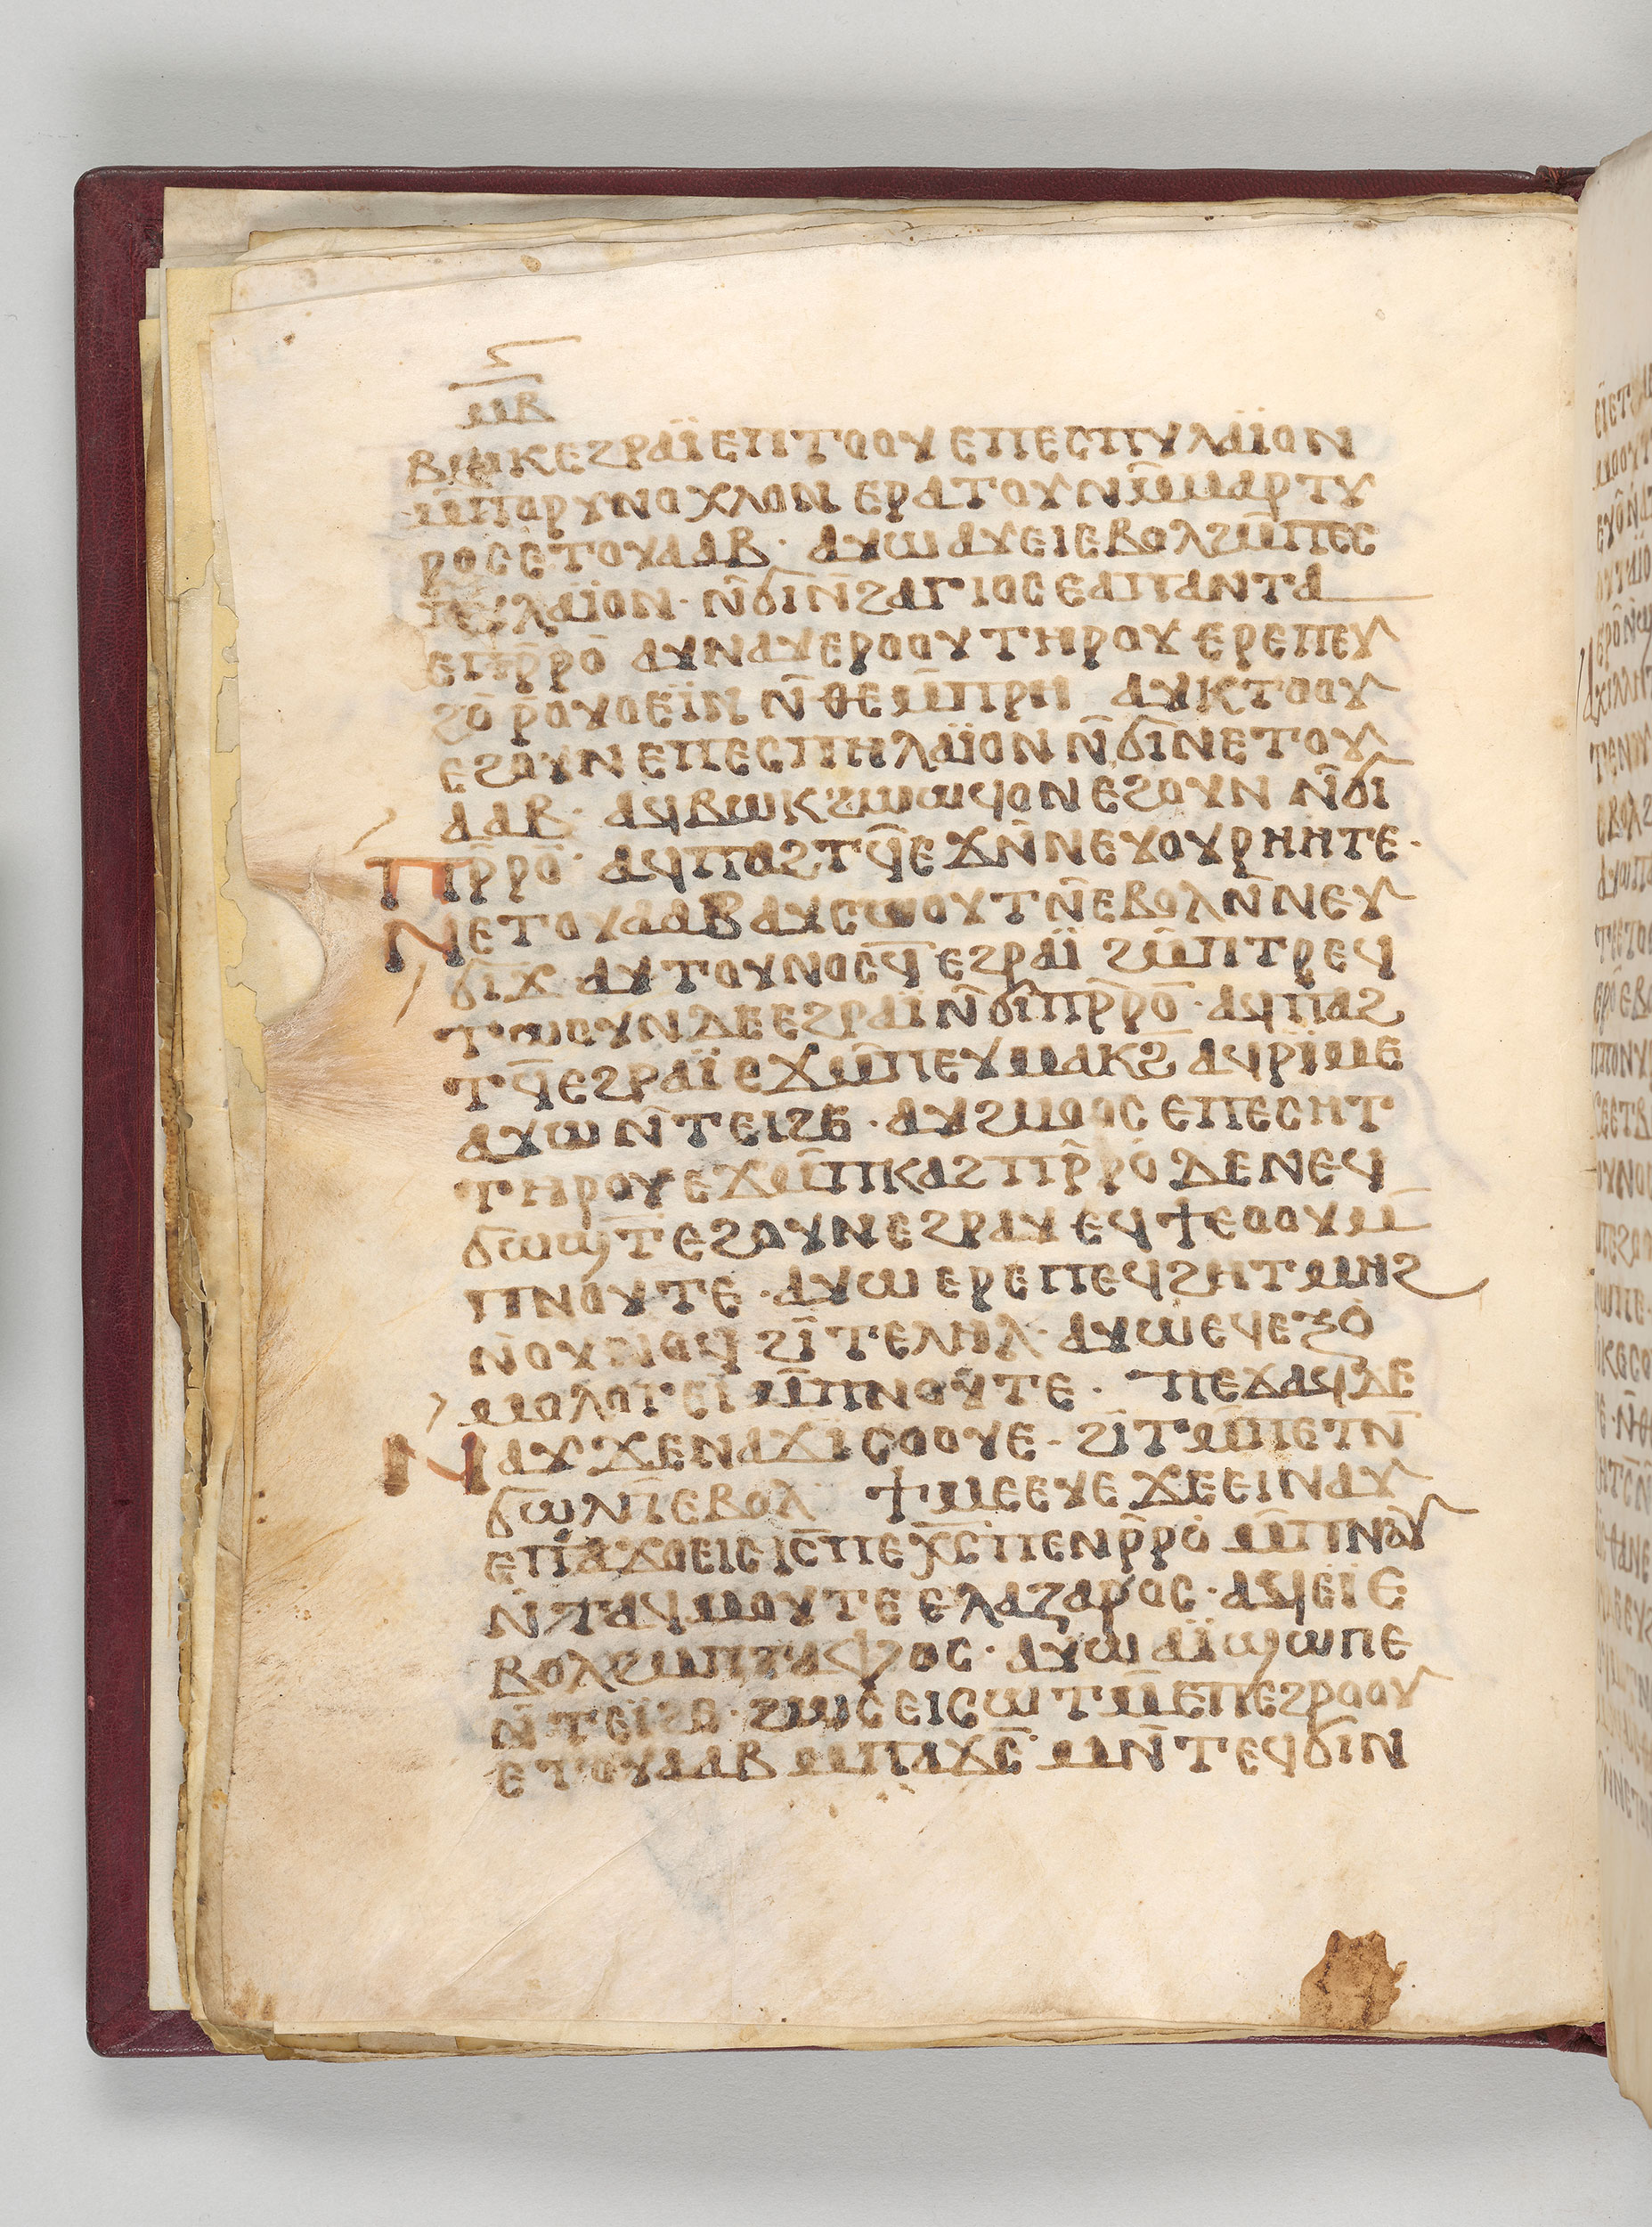 ⲙⲃ
ⲃⲱⲕⲉϩⲣⲁⲓ̈ⲉⲡⲧⲟⲟⲩⲉⲡⲉⲥⲡⲩⲗⲁⲓ̈ⲟⲛ
ⲙ̄ⲡⲁⲣⲩⲛⲟⲭⲗⲟⲛ ⲉⲣⲁⲧⲟⲩⲛⲙ̄ⲙⲁⲣⲧⲩ
ⲣⲟⲥⲉⲧⲟⲩⲁⲁⲃ · ⲁⲩⲱⲁⲩⲉⲓⲉⲃⲟⲗϩⲙ̄ⲡⲉⲥ
ⲡⲉⲗⲁⲓ̈ⲟⲛ · ⲛ̄ϭⲓⲛ̄ϩⲁⲅⲓⲟⲥⲉⲁⲡⲁⲛⲧⲁ
ⲉⲡⲣ̄ⲣⲟ̄ ⲁⲩⲛⲁⲩⲉⲣⲟⲟⲩⲧⲏⲣⲟⲩⲉⲣⲉⲡⲉⲩ
ϩⲟ ⲣ̄ⲟⲩⲟⲉⲓ̈ⲛ ⲛ̄ⲑⲉⲙ̄ⲡⲣⲏ ⲁⲩⲕⲧⲟⲟⲩ
ⲉϩⲟⲩⲛⲉⲡⲉⲥⲡⲏⲗⲁⲓ̈ⲟⲛ ⲛ̄ϭⲓⲛⲉⲧⲟⲩ
ⲁⲁⲃ · ⲁϥⲃⲱⲕϩⲱⲱϥⲟⲛⲉϩⲟⲩⲛ ⲛ̄ϭⲓ
ⲡⲣ̄ⲣⲟ̄ · ⲁϥⲡⲁϩⲧϥ̄ⲉϫⲛ̄ⲛⲉⲩⲟⲩⲣⲏⲏⲧⲉ ·
ⲛⲉⲧⲟⲩⲁⲁⲃⲁⲩⲥⲱⲟⲩⲧⲛ̄ⲉⲃⲟⲗⲛ̄ⲛⲉⲩ
ϭⲓϫ ⲁⲩⲧⲟⲩⲛⲟⲥϥ̄ⲉϩⲣⲁⲓ̈ ϩⲙ̄ⲡⲧⲣⲉϥ
ⲧⲱⲟⲩⲛⲇⲉⲉϩⲣⲁⲓ̈ⲛ̄ϭⲓⲡⲣ̄ⲣⲟ̄ · ⲁϥⲡⲁϩ
ⲧϥ̄ⲉϩⲣⲁⲓ̈ⲉϫⲙ̄ⲡⲉⲩⲙⲁⲕϩ̄ ⲁϥⲣⲓⲙⲉ
ⲁⲩⲱⲛ̄ⲧⲉⲓϩⲉ · ⲁⲩϩⲙⲟⲟⲥ ⲉⲡⲉⲥⲏⲧ
ⲧⲏⲣⲟⲩⲉϫⲙ̄ⲡⲕⲁϩⲡⲣ̄ⲣⲟ̄ ⲇⲉⲛⲉϥ
ϭⲱϣⲧ̄ⲉϩⲟⲩⲛⲉϩⲣⲁⲩⲉϥϯⲉⲟⲟⲩⲙ̄
ⲡⲛⲟⲩⲧⲉ · ⲁⲩⲱⲉⲣⲉⲡⲉϥϩⲏⲧⲙⲏϩ
ⲛ̄ⲟⲩⲛⲟϥ ϩⲓⲧⲉⲗⲏⲗ · ⲁⲩⲱⲉϥⲉϩⲟ
ⲙⲟⲗⲟⲅⲉⲓ ⲙ̄ⲡⲛⲟⲩⲧⲉ · ⲡⲉϫⲁϥⲇⲉ
ⲛⲁⲩϫⲉⲛⲁϫⲓⲥⲟⲟⲩⲉ · ϩⲓⲧⲙ̄ⲡⲉⲧⲛ̄
ϭⲱⲗⲡ̄ⲉⲃⲟⲗ ϯⲙⲉⲉⲩⲉ ϫⲉⲉⲓⲛⲁⲩ
ⲉⲡⲁϫⲟⲉⲓⲥⲓⲥ̄ⲡⲉⲭ̄ⲥ̄ⲡⲉⲛⲣ̄ⲣⲟ ⲙ̄ⲡⲛⲟⲩ
ⲛ̄ⲧⲁϥⲙⲟⲩⲧⲉⲉⲗⲁⲍⲁⲣⲟⲥ · ⲁϥⲉⲓ̈ⲉ
ⲃⲟⲗϩⲙ̄ⲡⲧⲁⲫⲟⲥ · ⲁⲩⲱ ⲁⲓ̈ϣⲱⲡⲉ
ⲛ̄ⲧⲉⲓ̈ϩⲉ · ϩⲱⲥⲉⲓⲥⲱⲧⲙ̄ⲉⲡⲉϩⲣⲟⲟⲩ
ⲉⲧⲟⲩⲁⲁⲃ ⲙ̄ⲡⲁϫⲥ̄ ⲙⲛ̄ⲧⲉϥϭⲓⲛ